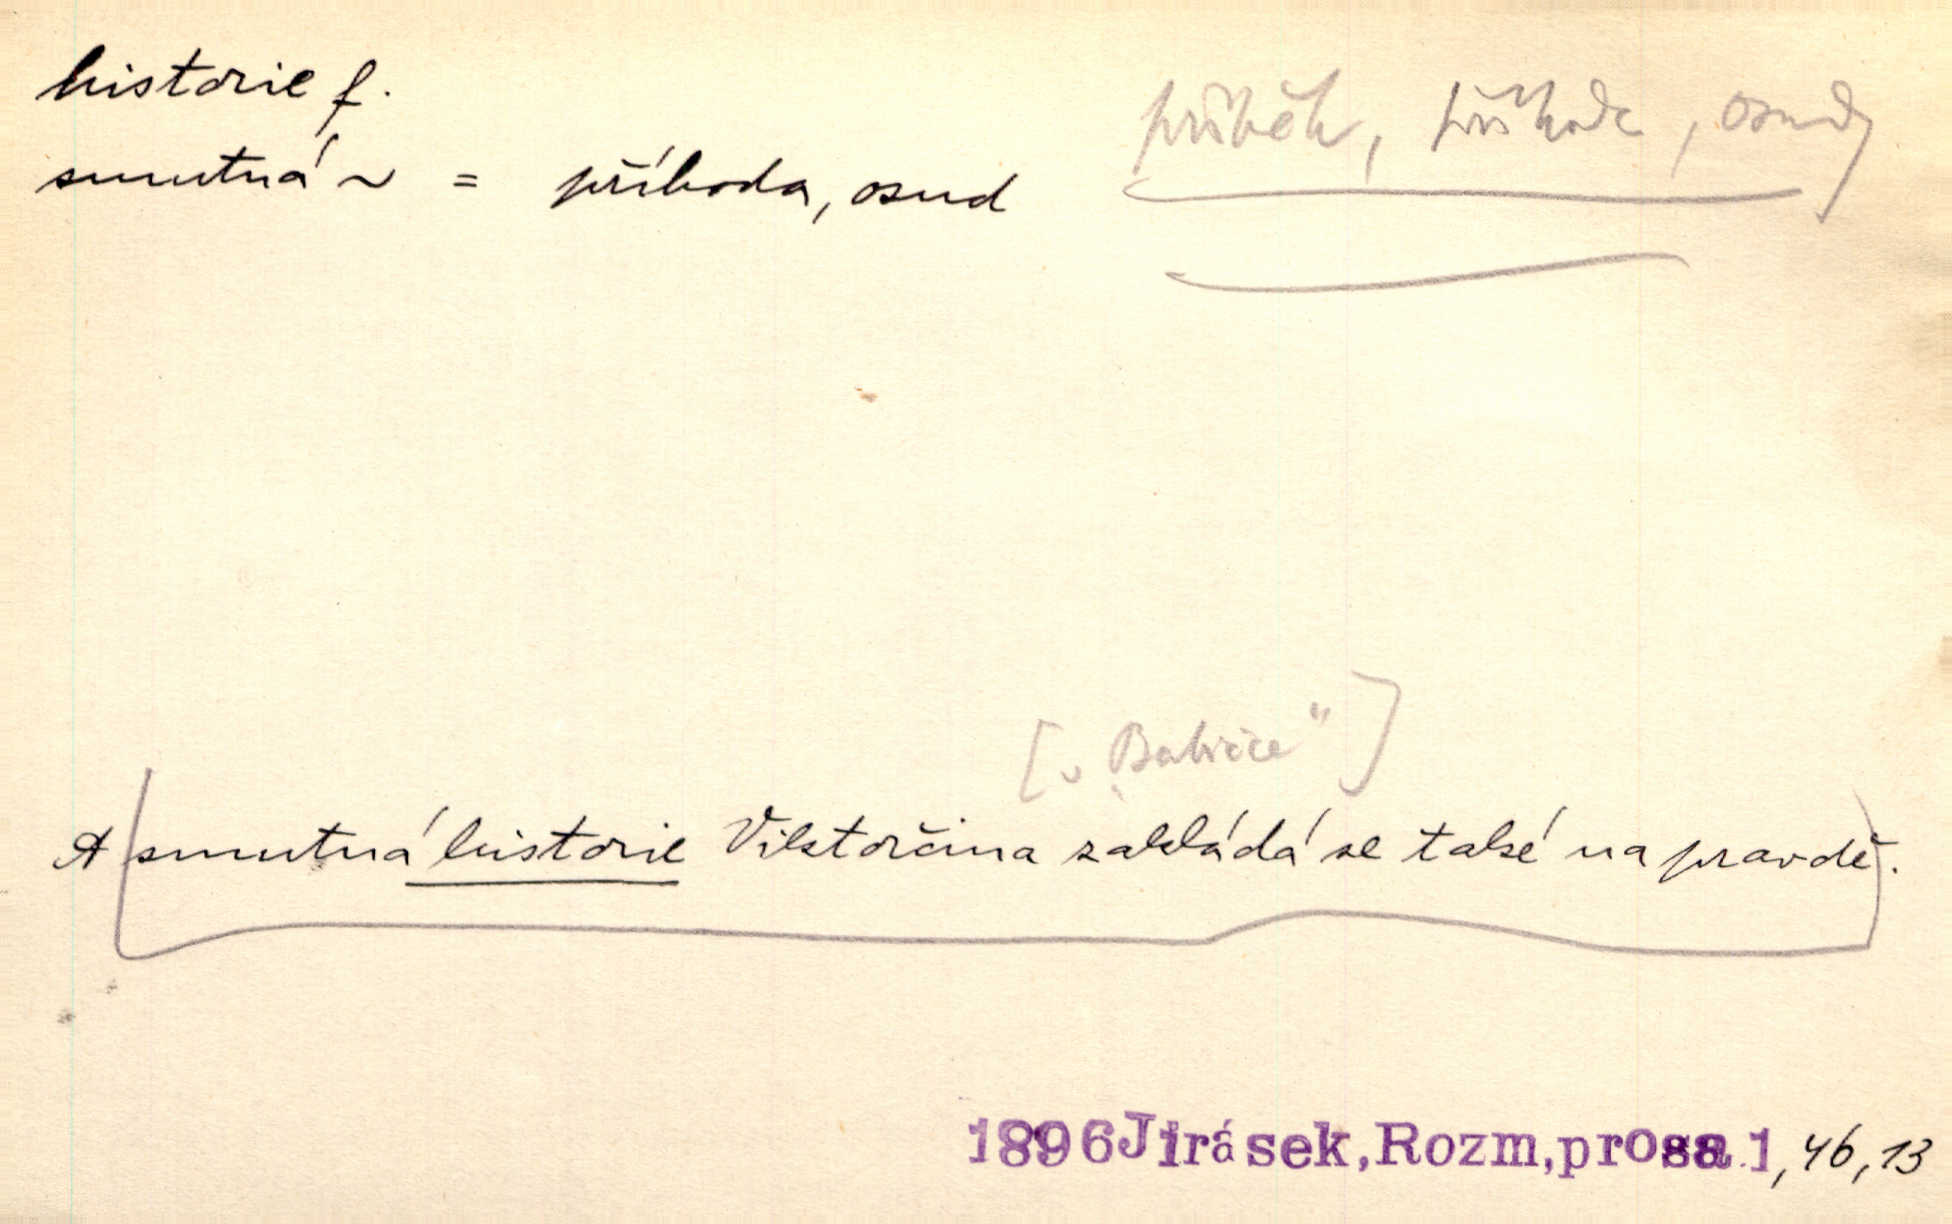 historie f.
smutná ~ = příhoda, osud
příběh, příhoda, osudy
[v „Babičce“]
A smutná historie Viktorčina zakládá se také na pravdě.
1896 Jirásek, Rozm, prosa 1, 46, 13